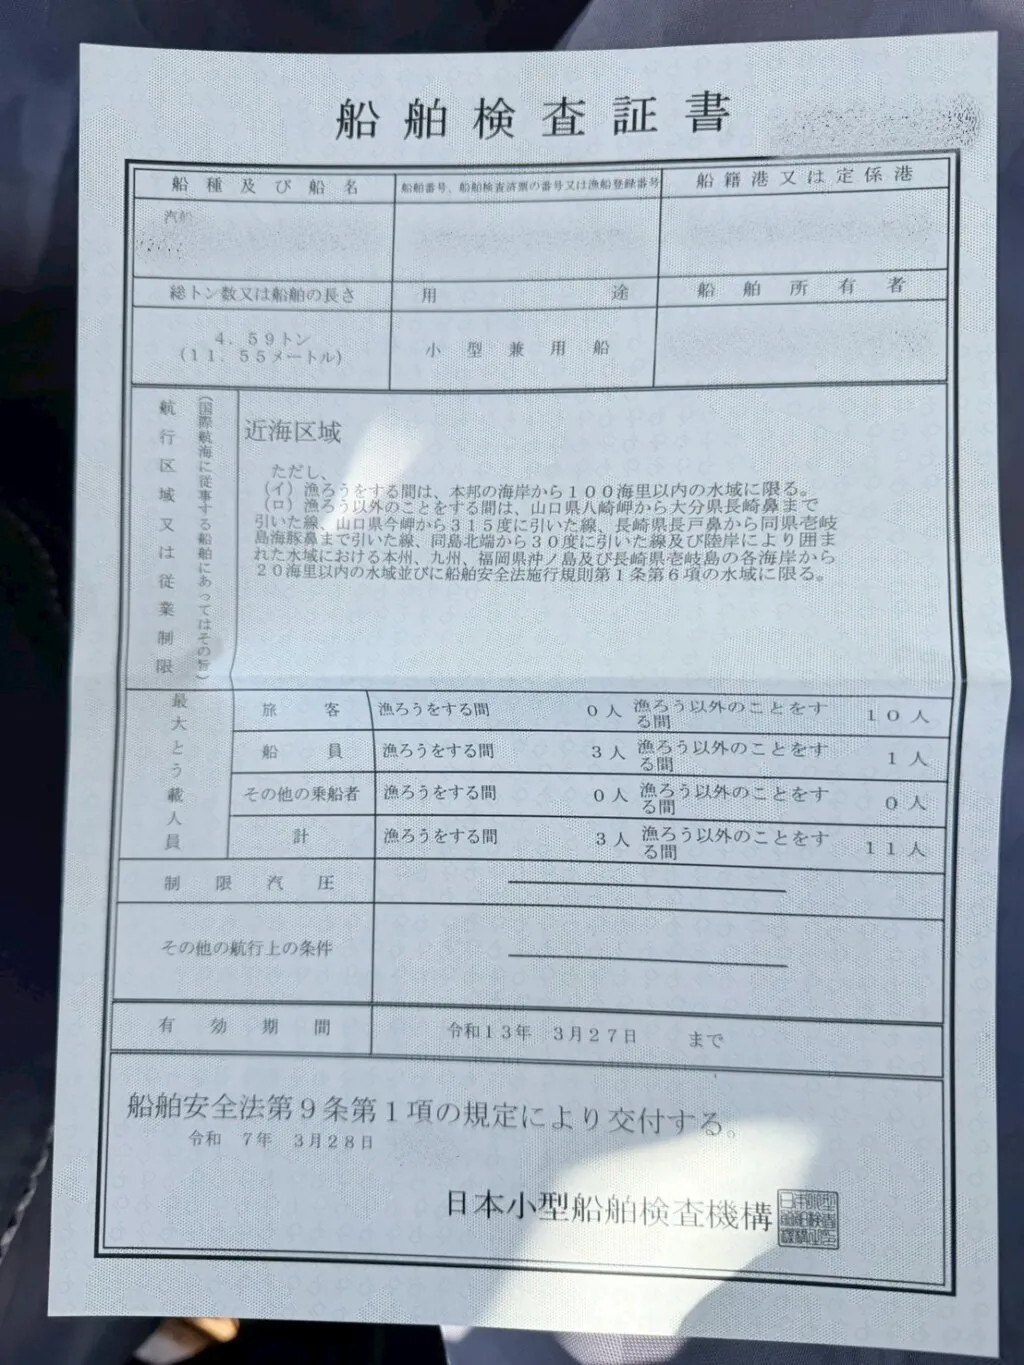 船舶検査証書
船種及び船名
船舶番号、船舶検査済票の番号又は漁船登録番号
船籍港又は定係港
汽船
総トン数又は船舶の長さ
用途
船舶所有者
4.59トン
(11.55メートル)
小型兼用船
航行区域又は従業制限
(国際航海に従事する船舶にあってはその旨)
近海区域
ただし、
(イ)漁ろうをする間は、本邦の海岸から100海里以内の水域に限る。
(ロ)漁ろう以外のことをする間は、山口県八崎岬から大分県長崎鼻まで
引いた線、山口県今岬から315度に引いた線、長崎県長戸鼻から同県壱岐
島海豚鼻まで引いた線、同島北端から30度に引いた線及び陸岸により囲ま
れた水域における本州、九州、福岡県沖ノ島及び長崎県壱岐島の各海岸から
20海里以内の水域並びに船舶安全法施行規則第1条第6項の水域に限る。
最大とう載人員
旅客 漁ろうをする間 0人 漁ろう以外のことをす
る間 10人
船員 漁ろうをする間 3人 漁ろう以外のことをす
る間 1人
その他の乗船者 漁ろうをする間 0人 漁ろう以外のことをす
る間 0人
計 漁ろうをする間 3人 漁ろう以外のことをす
る間 11人
制限汽圧
その他の航行上の条件
有効期間
令和13年 3月27日 まで
船舶安全法第9条第1項の規定により交付する。
令和 7年 3月28日
日本小型船舶検査機構